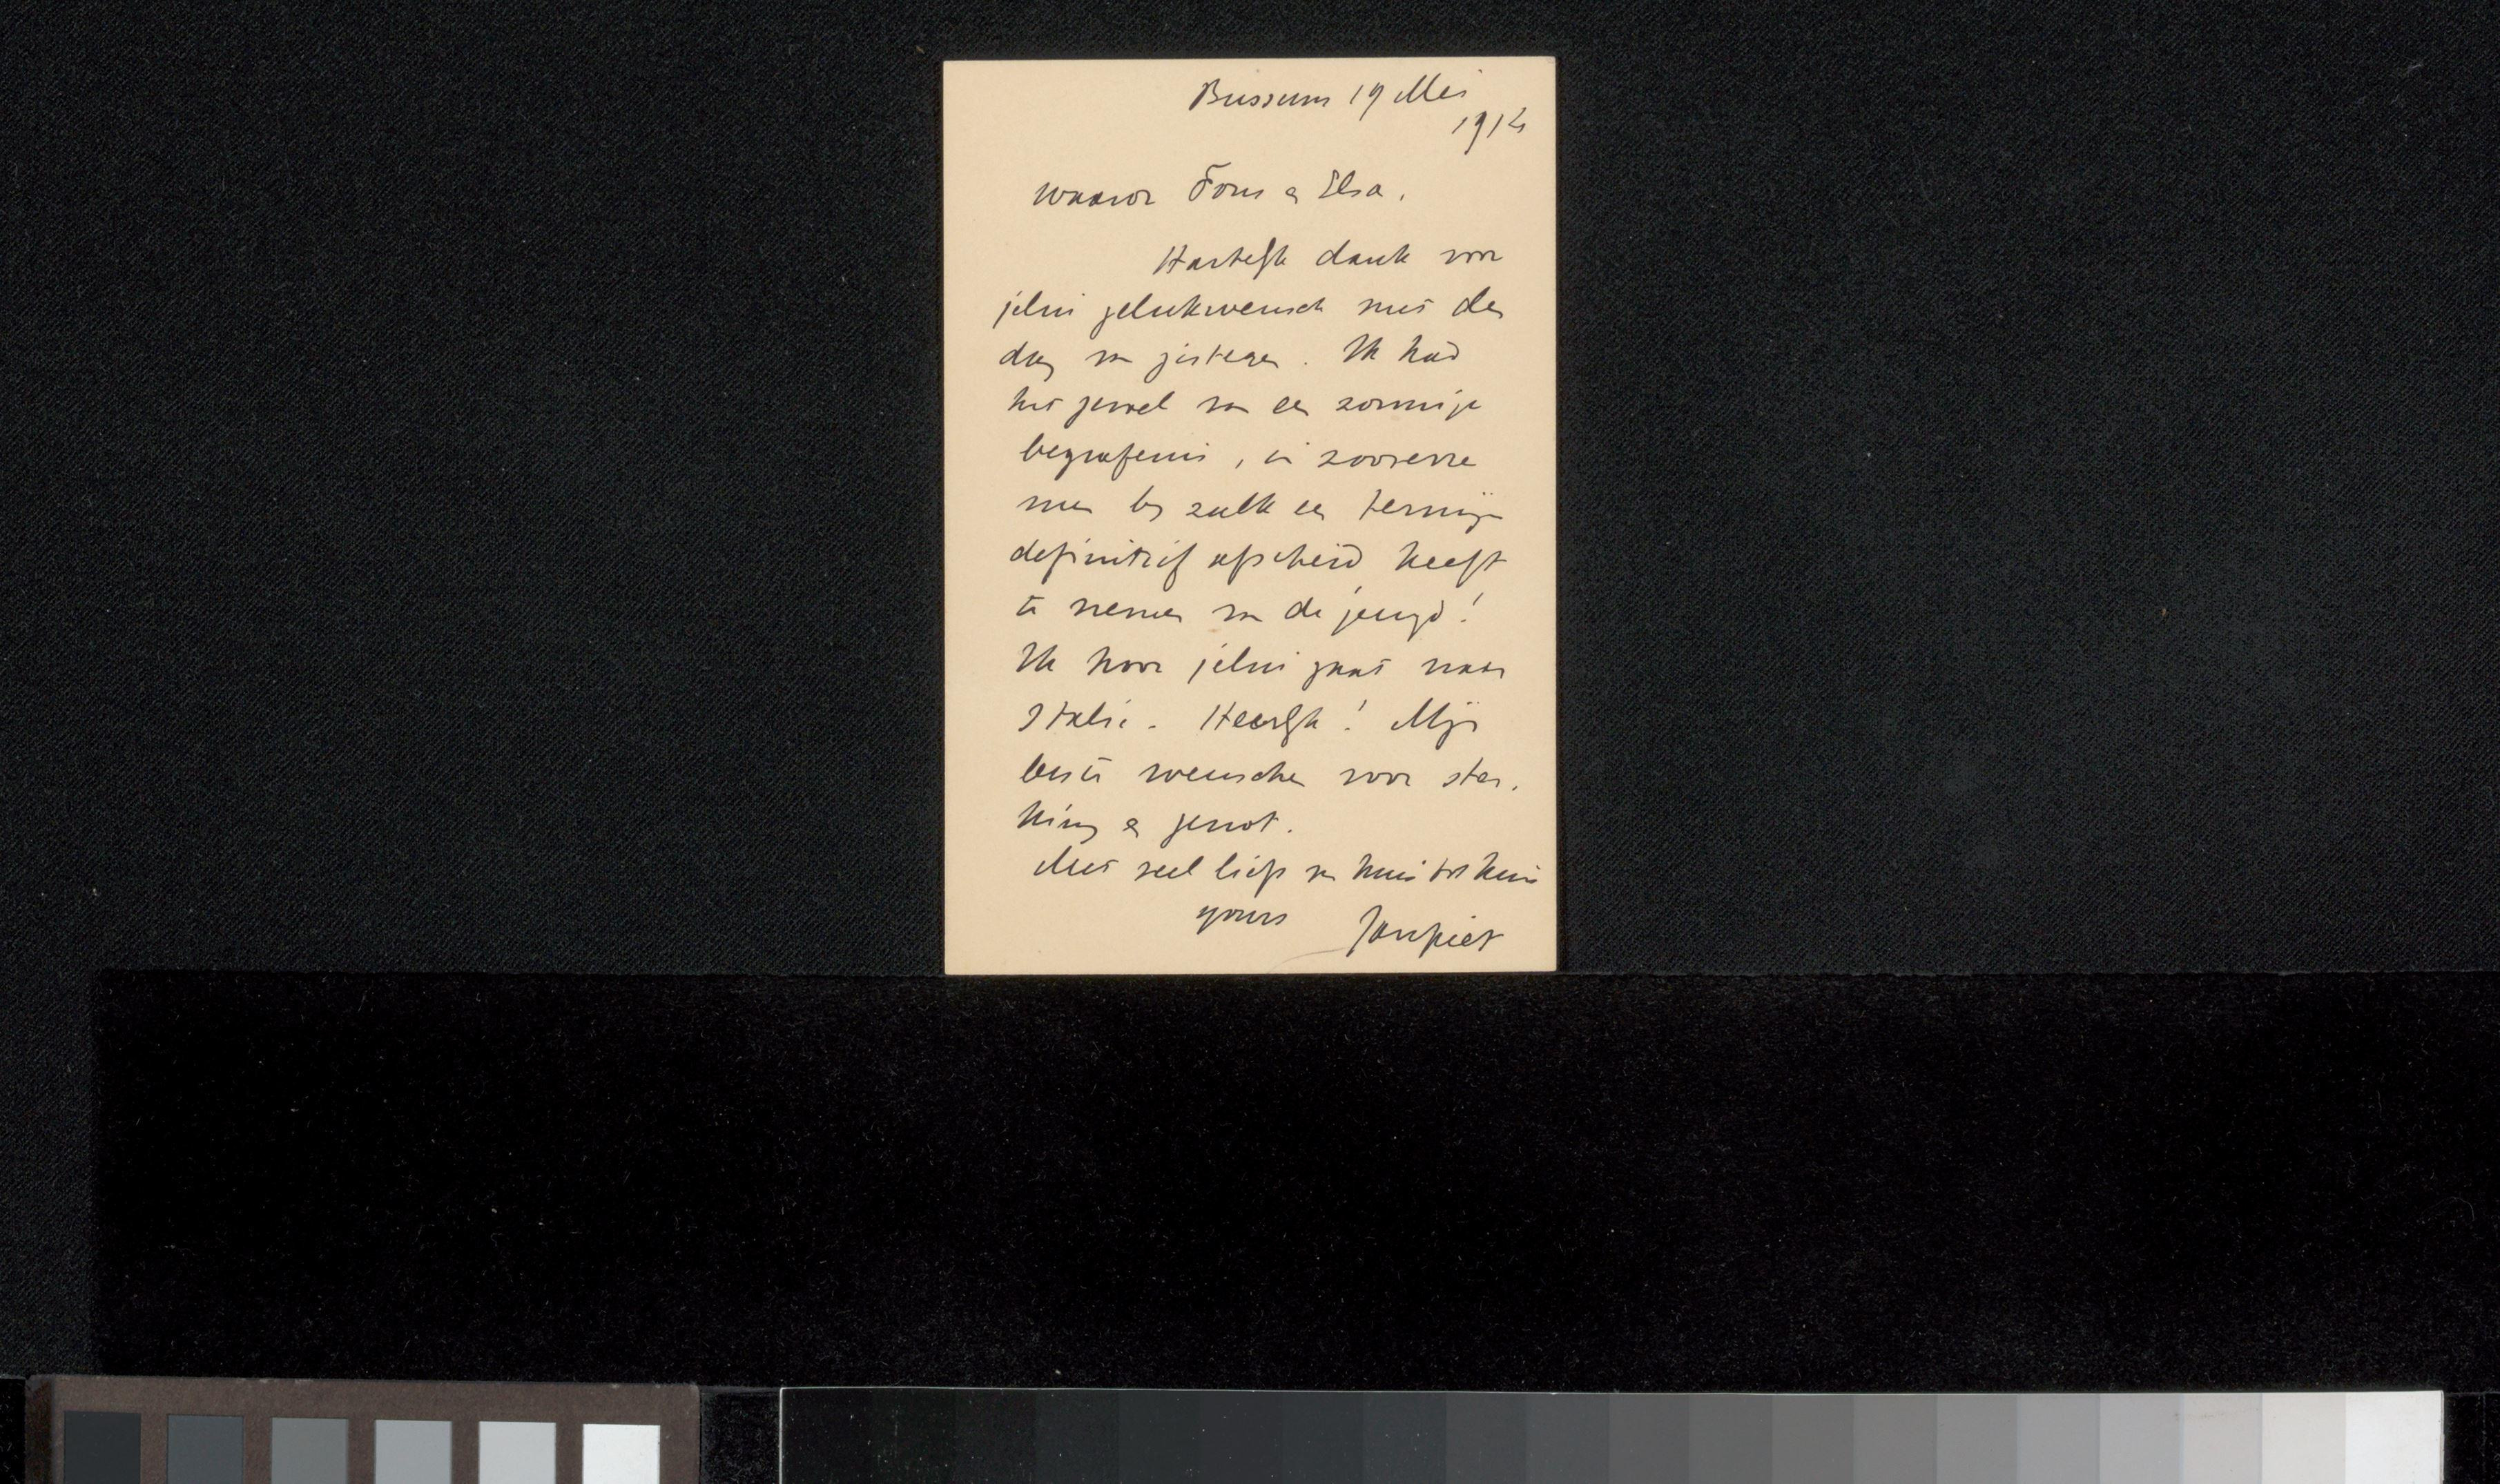 Bussum 19 Mei
1914
Waarde Fons en Elsa.
Hartelijk dank voor
jelui gelukwensch met den
dag van gisteren. Ik had
het gevoel van een zonnige
begrafenis, in zooverre
men bij zulk een termijn
definitief afscheid heeft
te nemen van de jeugd!
Ik hoor jelui gaat naar
Italië. Heerlijk! Mijn
beste wenschen voor ster-
king en genot.
Met veel liefs van huis tot huis
yours Janpiet